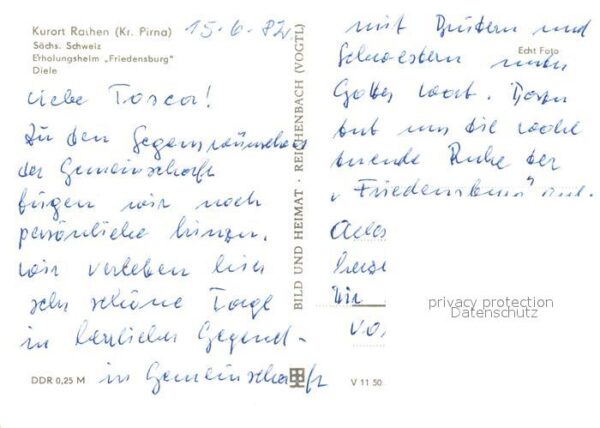 Kurort Rathen (Kr. Pirna)
Sächs. Schweiz
Erholungsheim „Friedensburg"
Diele
15.6.82
Liebe Tosca!
Zu den Segenswünschen
der Gemeinschaft
fügen wir noch
persönliche hinzu.
Wir verleben hier
sehr schöne Tage
in herrlicher Gegend -
in Gemeinschaft
DDR 0,25 M
BILD UND HEIMAT · REICHENBACH (VOGTL)
V 11 50
Echt Foto
mit Brüdern und
Schwestern unter
Gottes Wort. Dazu
tut uns die wohl
tuende Ruhe der
„Friedensburg" gut.
privacy protection
Datenschutz